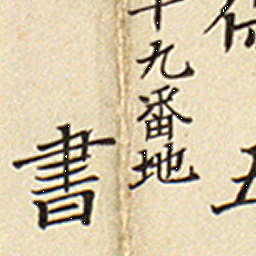 五
十九番地
書